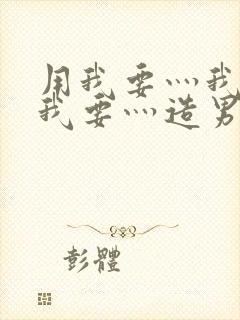 用我要灬我
我要灬造男
彭體